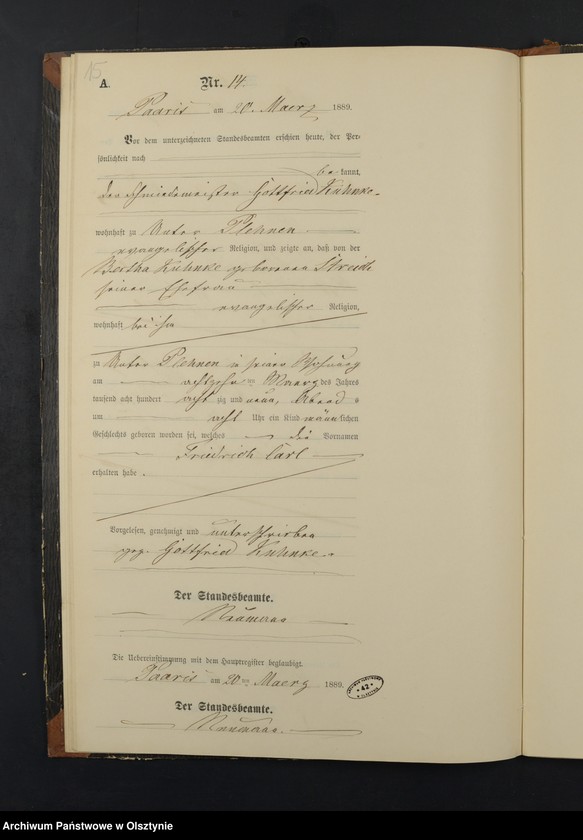 15
A.
Nr. 14.
Paaris am 20. Maerz 1889.
Vor dem unterzeichneten Standesbeamten erschien heute, der Per-
sönlichkeit nach
be kannt,
der Schmiedemeister Gottfried Kuhnke
wohnhaft zu Unter Plehnen
evangelischer Religion, und zeigte an, daß von der
Bertha Kuhnke geborenen Streich
seiner Ehefrau
evangelischer Religion,
wohnhaft bei ihm
zu Unter Plehnen in seiner Wohnung
am achtzehn ten Maerz des Jahres
tausend acht hundert acht zig und neun, Abend s
um acht Uhr ein Kind männ lichen
Geschlechts geboren worden sei, welches die Vornamen
Friedrich Carl
erhalten habe.
Vorgelesen, genehmigt und unterschrieben
gez. Gottfried Kuhnke.
Der Standesbeamte.
Die Uebereinstimmung mit dem Hauptregister beglaubigt.
Paaris am 20 ten Maerz 1889.
Der Standesbeamte.
42
Archiwum Państwowe w Olsztynie